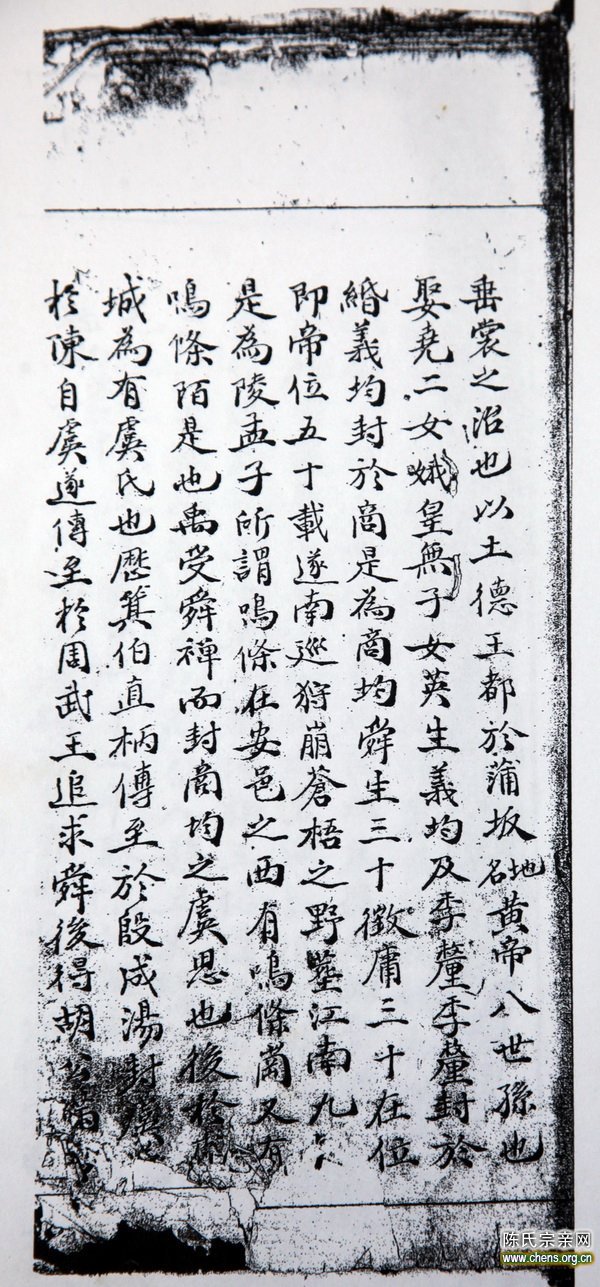 垂裳之治也以土德王都於蒲坂地名黄帝八世孫也
娶堯二女娥皇無子女英生義均及季釐季釐封於
緍義均封於啇是為啇均舜生三十徵庸三十在位
即帝位五十載遂南巡狩崩蒼梧之野塟江南九
是為陵孟子所謂鳴條在安邑之西有鳴條崗又有
鳴條陌是也禹受舜禅而封啇均之虞思也後於
城為有虞氏也歷箕伯直柄傳至於殷成湯封
於陳自虞遂傳至於周武王追求舜後得胡公满
陈氏宗亲网
www.chens.org.cn